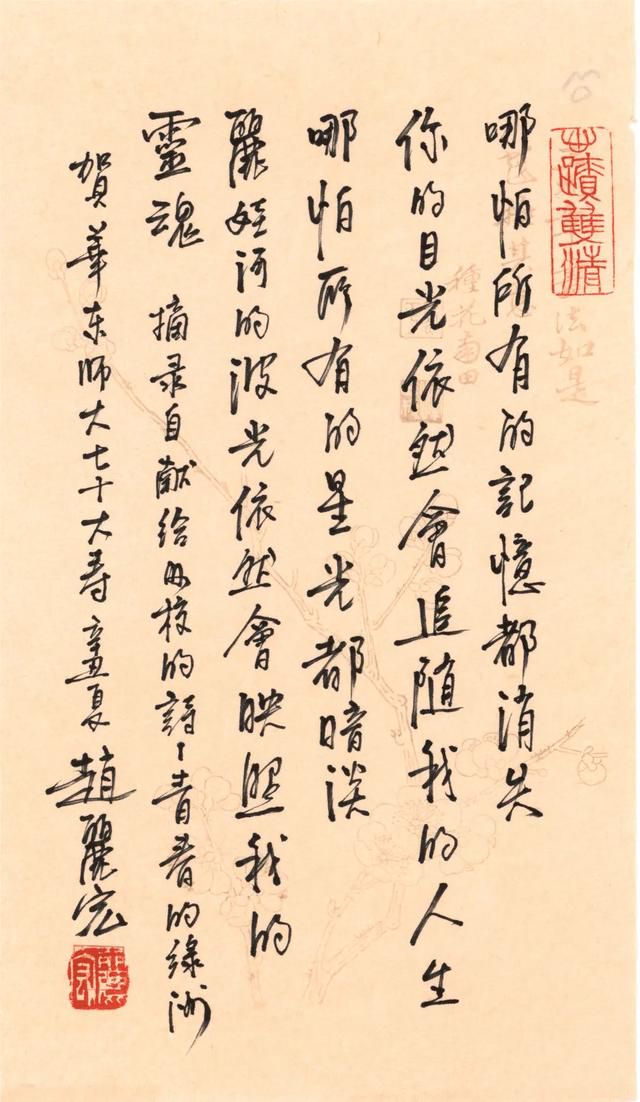 哪怕所有的記憶都消失
你的目光依然會追隨我的人生
哪怕所有的星光都暗淡
麗娃河的波光依然會映照我的
靈魂 摘录自献给母校的詩——青春的綠洲
賀華东师大七十大寿 辛丑夏 趙麗宏
種花南田
法如是